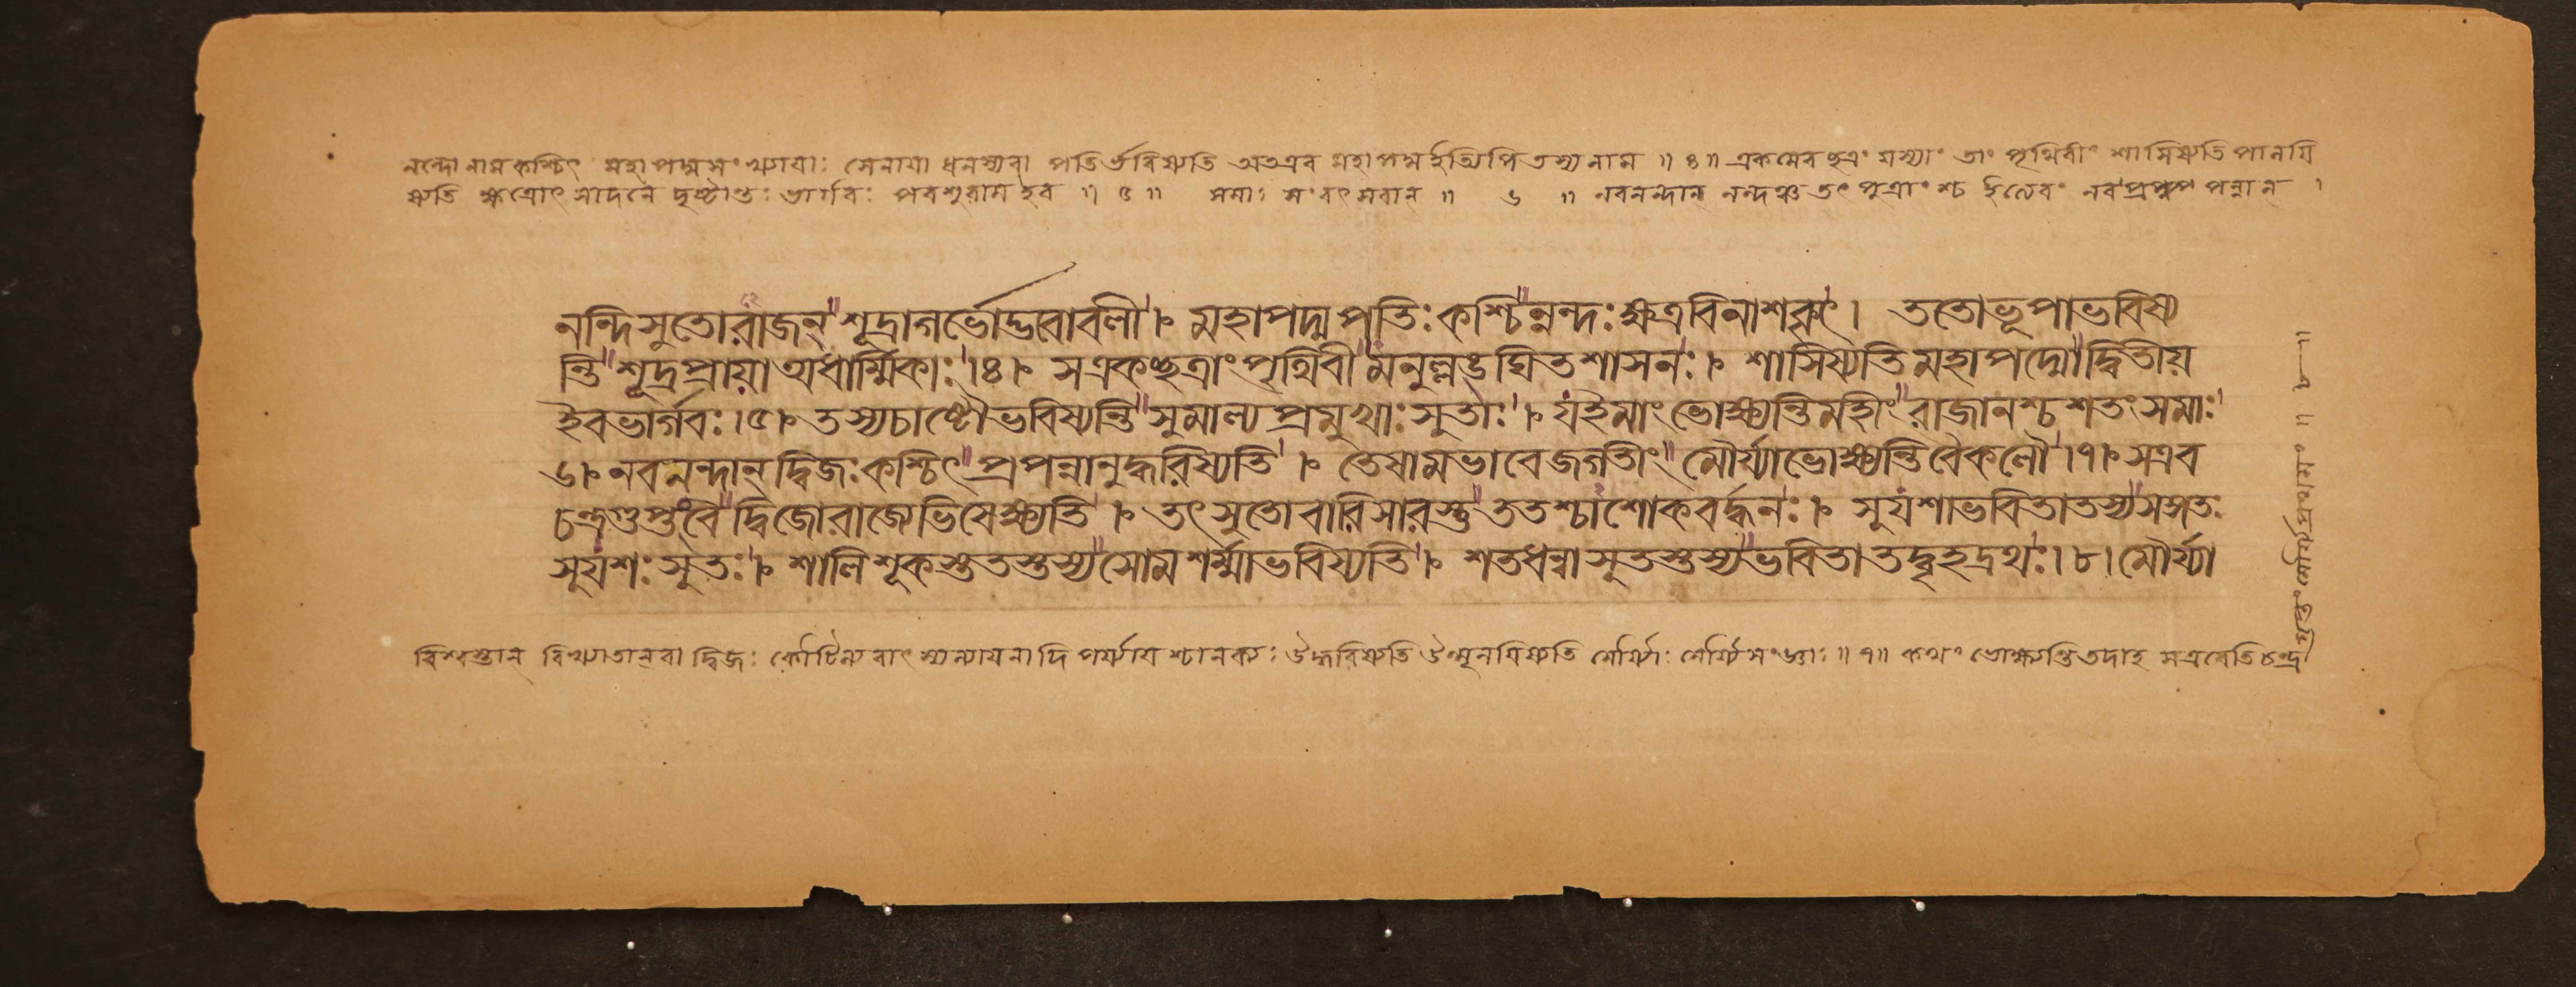 নন্দো নাম কশ্চিৎ মহাপদ্মসংখ্যায়াঃ সেনায়া ধনস্যবা পতির্ভবিষ্যতি অতএব মহাপদ্ম ইত্যপি তস্য নাম ॥ ৪ ॥ একমেব ছত্রং যস্যাং তাং পৃথিবীং শাসিষ্যতি পালয়ি
ষ্যতি ক্ষত্রোৎসাদনে দৃষ্টান্তঃ ভার্গবঃ পরশুরাম ইব ॥ ৫ ॥ সমাঃ সংবৎসরান্ ॥ ৬ ॥ নবনন্দান্ নন্দঞ্চ তৎ পুত্রাংশ্চ ইত্যেবং নব প্রপন্নান্
নন্দিসুতোরাজন্ শূদ্রাগর্ভোদ্ভবোবলী । মহাপদ্মপতিঃ কশ্চিন্নন্দঃ ক্ষত্রবিনাশকৃৎ । ততোভূপাভবিষ্য
ন্তি শূদ্রপ্রায়া অধার্ম্মিকাঃ ।৪। সএকচ্ছত্রাং পৃথিবী মনুল্লঙ্ঘিতশাসনঃ । শাসিষ্যতি মহাপদ্মো দ্বিতীয়
ইবভার্গবঃ ।৫। তস্যচাষ্টৌভবিষ্যন্তি সুমাল্য প্রমুখাঃ সুতাঃ । যইমাং ভোক্ষ্যন্তি মহীং রাজানশ্চ শতং সমাঃ
৬। নবনন্দান্ দ্বিজঃ কশ্চিৎ প্রপন্নানুদ্ধরিষ্যতি । তেষামভাবে জগতীং মৌর্য্যাভোক্ষ্যন্তি বৈকলৌ ।৭। সএব
চন্দ্রগুপ্তংবৈ দ্বিজোরাজ্যেভিষেক্ষ্যতি । তৎসুতোবারিসারস্তু ততশ্চাশোকবর্দ্ধনঃ । সুযশাভবিতাতস্য সঙ্গতঃ
সুযশঃ সুতঃ । শালিশূকস্ততস্তস্য সোমশর্ম্মাভবিষ্যতি । শতধন্বাসুতস্তস্য ভবিতাতদ্বৃহদ্রথঃ ।৮। মৌর্য্যা
বিশ্বস্তান্ বিখ্যাতান্ বা দ্বিজঃ কৌটিল্য বাৎস্যায়নাদি পর্য্যায়শ্চানক্যঃ উদ্ধরিষ্যতি উন্মূলয়িষ্যতি মৌর্য্যাঃ মৌর্য্যসংজ্ঞাঃ ॥ ৭ ॥ কথং ভোক্ষ্যন্তি তদাহ সএবেতি চন্দ্র
গুপ্তং মৌর্য্যপ্রথমং ॥ ৮ ॥